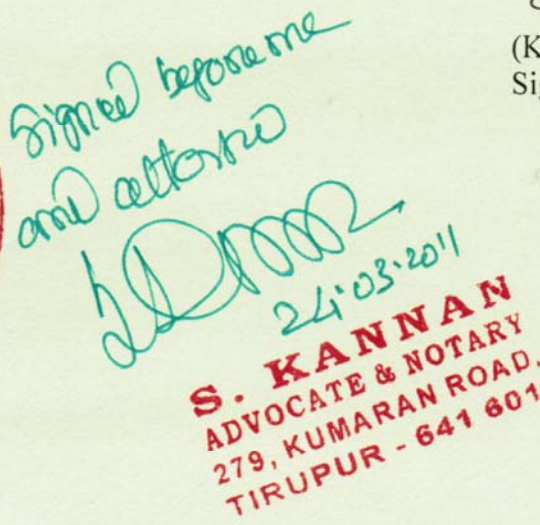 (K
Sig
Signed before me
and attested
24.03.2011
S. KANNAN
ADVOCATE & NOTARY
279, KUMARAN ROAD,
TIRUPUR - 641 601